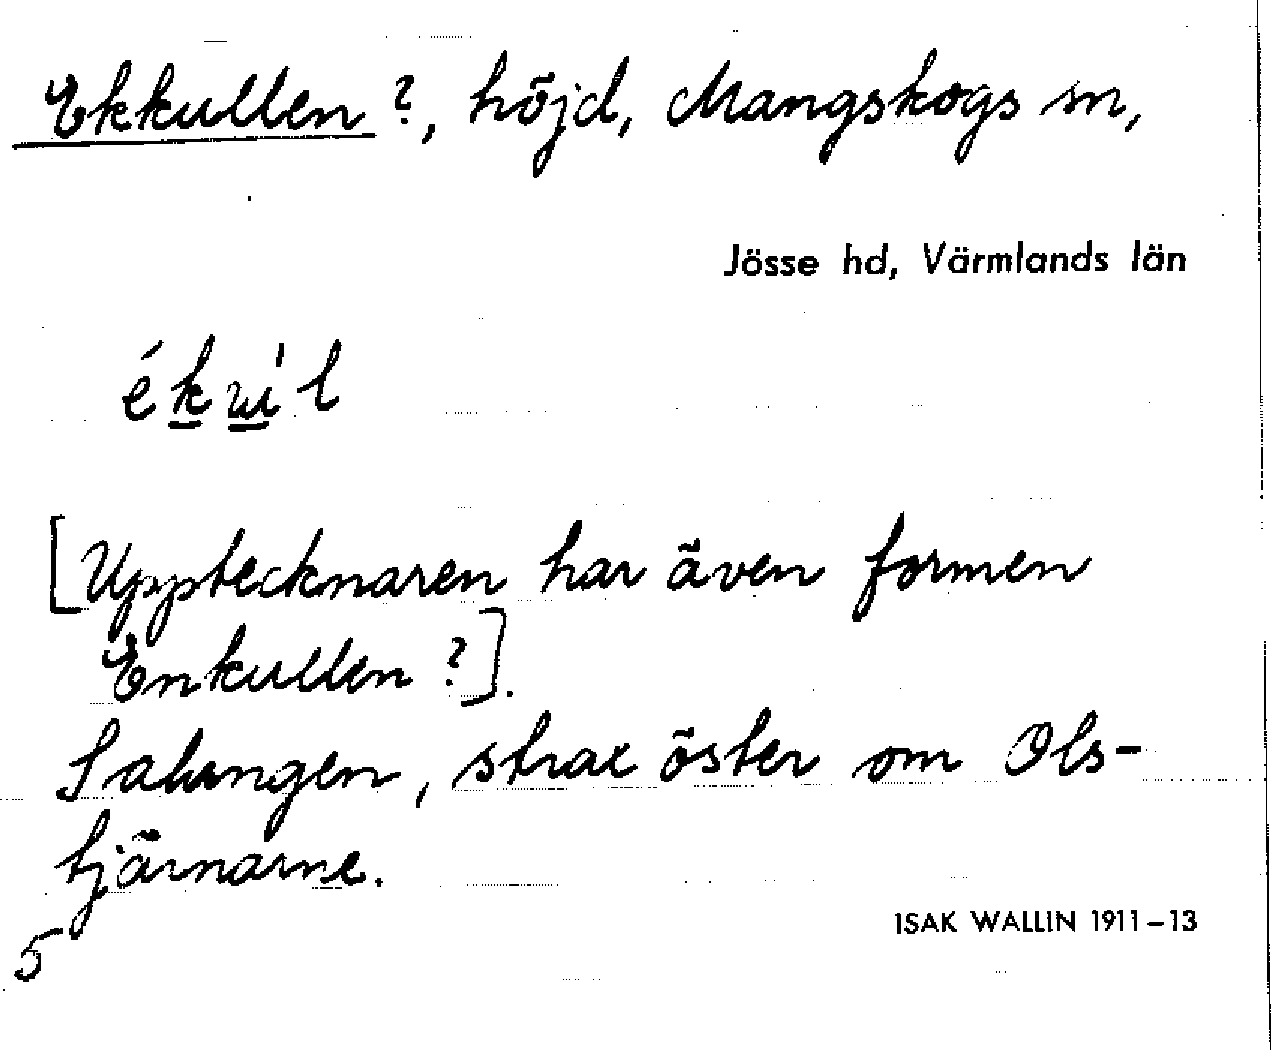 Ekkullen?, höjd, Mangskogs sn,
Jösse hd, Värmlands län
[Upptecknaren har även formen
Enkullen?].
Salungen, strax öster om Ols-
tjärnarne.
ISAK WALLIN 1911–13
5